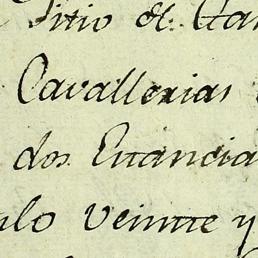 Sitio de Ca
Cavallerias
dos Estancia
ulo veinte y